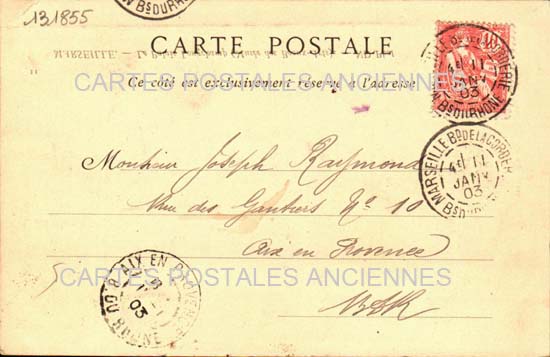 131855
CARTE POSTALE
Ce côté est exclusivement réservé à l'adresse
CARTES POSTALES ANCIENNES
Monsieur Joseph Raymond
Rue des Gantiers Nº 10
Aix en Provence
CARTES POSTALES ANCIENNES
B D R
MARSEILLE Bᴰ DE LA CORDERIE
4ᴱ 11
JANV
03
Bˢ DU RHÔNE
MARSEILLE Bᴰ DE LA CORDERIE
4ᴱ 11
JANV
03
Bˢ DU RHÔNE
AIX EN PROVENCE
03
Bˢ DU RHÔNE